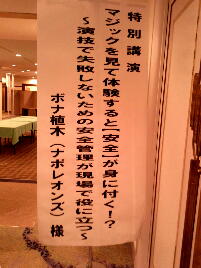 特別講演
マジックを見て体験すると「安全」が身に付く!?
～演技で失敗しないための安全管理が現場で役に立つ～
ボナ植木(ナポレオンズ)様